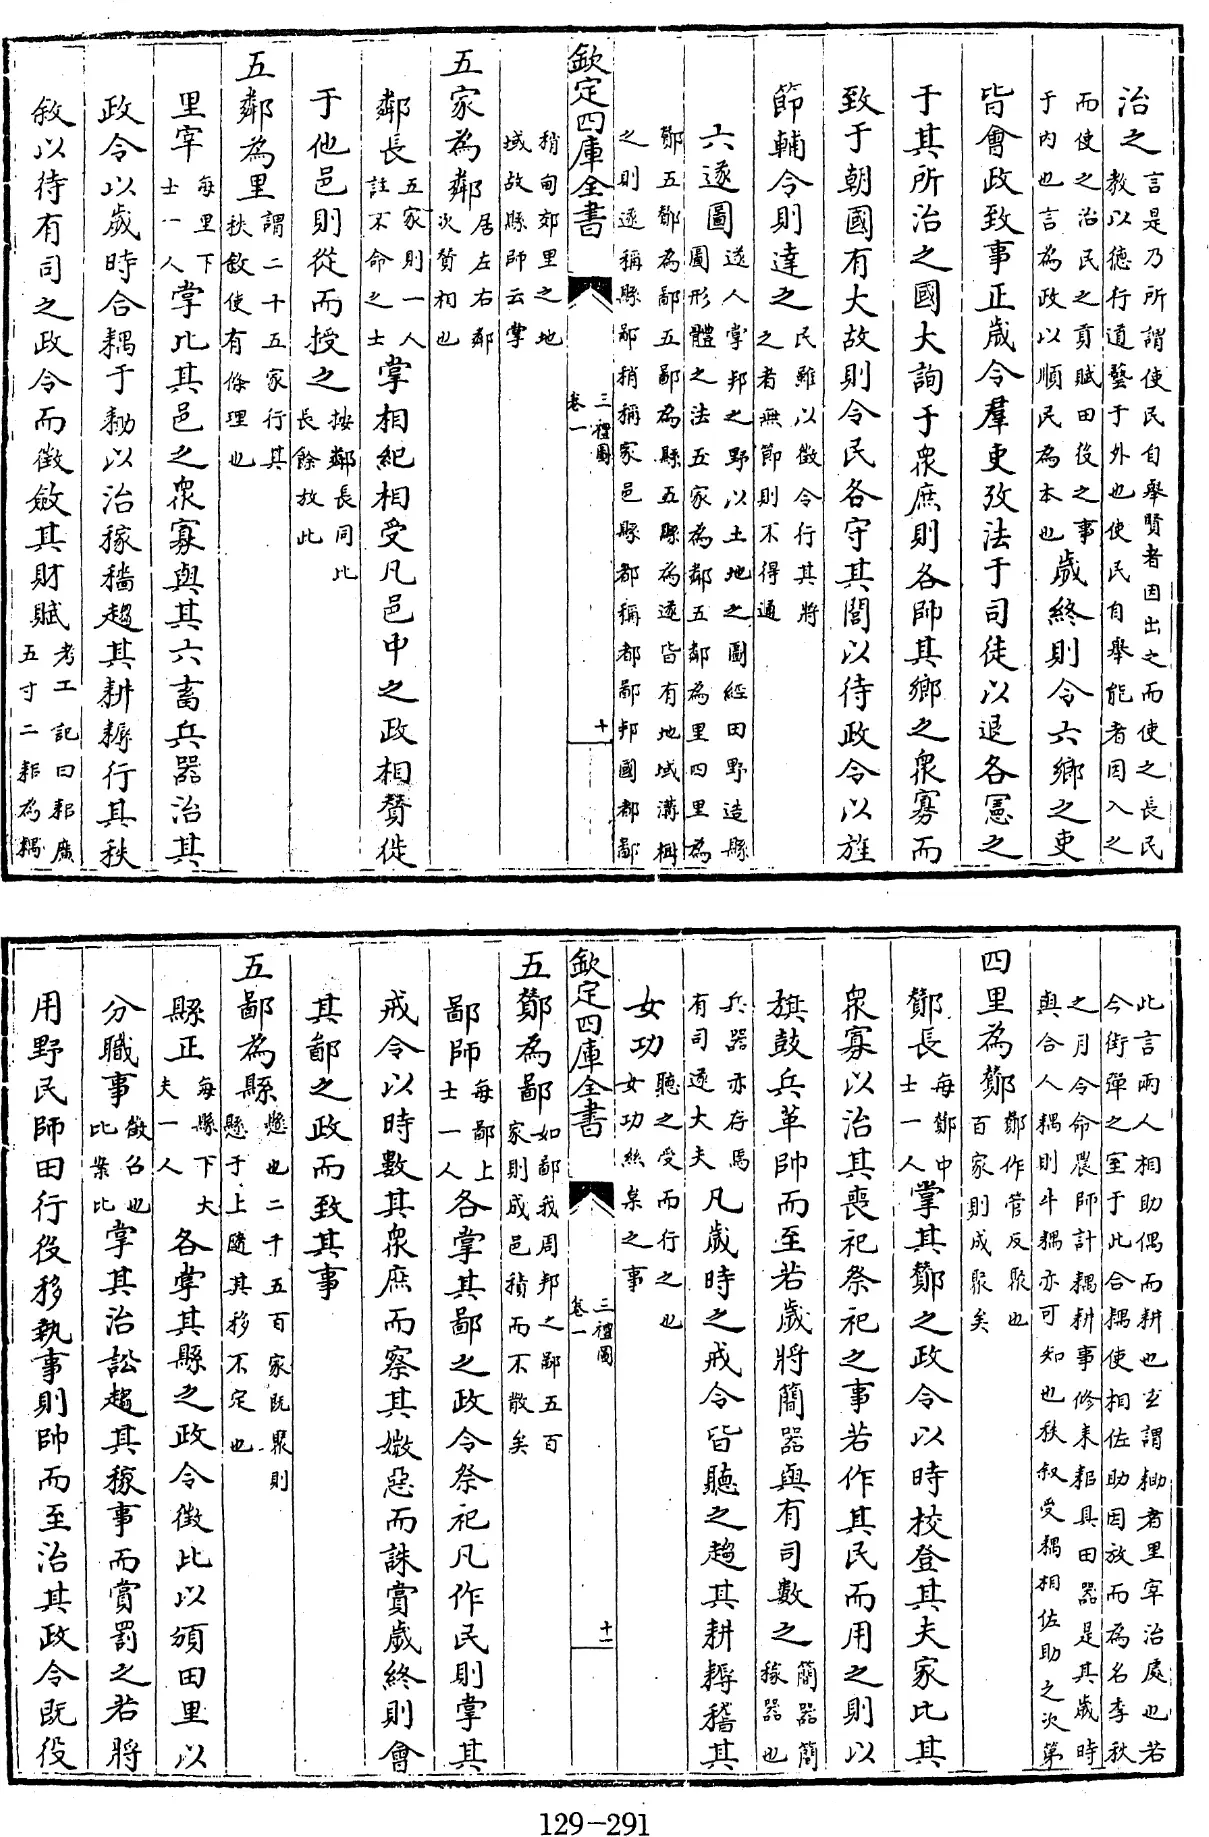 治之言是乃所謂使民自舉賢者因出之而使之長民教以德行道藝于外也使民自舉能者因入之
而使之治民之貢賦田役之事于内也言為政以順民為本也歲終則令六鄉之吏
皆會政致事正歲令羣吏攷法于司徒以退各憲之
于其所治之國大詢于衆庶則各帥其鄉之衆寡而
致于朝國有大故則令民各守其閭以待政令以旌
節輔令則達之民雖以徵令行其將之者無節則不得通
六遂圖遂人掌邦之野以土地之圖經田野造縣鄙形體之法五家為鄰五鄰為里四里為
酇五酇為鄙五鄙為縣五縣為遂皆有地域溝樹之則遂稱縣鄙稍稱家邑縣都稱都鄙邦國都鄙
欽定四庫全書
三禮圖
卷一
十
稍甸郊里之地域故縣師云掌
五家為鄰居左右鄰次贊相也
鄰長五家則一人註不命之士掌相紀相受凡邑中之政相贊徙
于他邑則從而授之按鄰長同比長餘放此
五鄰為里謂二十五家行其秩敘使有條理也
里宰每里下士一人掌比其邑之衆寡與其六畜兵器治其
政令以歲時合耦于耡以治稼穡趨其耕耨行其秩
敘以待有司之政令而徵斂其財賦考工記曰耜廣五寸二耜為耦
此言兩人相助偶而耕也玄謂耡者里宰治處也若今街彈之室于此合耦使相佐助因放而為名季秋
之月令命農師計耦耕事修耒耜具田器是其歲時與合人耦則牛耦亦可知也秩叙受耦相佐助之次第
四里為酇酇作管反聚也百家則成聚矣
酇長每酇中士一人掌其酇之政令以時校登其夫家比其
衆寡以治其喪祀祭祀之事若作其民而用之則以
旗鼓兵革帥而至若歲將簡器與有司數之簡器簡稼器也
兵器亦存焉有司遂大夫凡歲時之戒令皆聽之趨其耕耨稽其
女功聽之受而行之也女功絲枲之事
欽定四庫全書
三禮圖
卷一
十一
五酇為鄙如鄙我周邦之鄙五百家則成邑積而不散矣
鄙師每鄙上士一人各掌其鄙之政令祭祀凡作民則掌其
戒令以時數其衆庶而察其媺惡而誅賞歲終則會
其鄙之政而致其事
五鄙為縣懸也二千五百家既聚則懸于上隨其移不定也
縣正每縣下大夫一人各掌其縣之政令徵比以頒田里以
分職事徵召也比案比掌其治訟趨其稼事而賞罰之若將
用野民師田行役移執事則帥而至治其政令既役
129-291